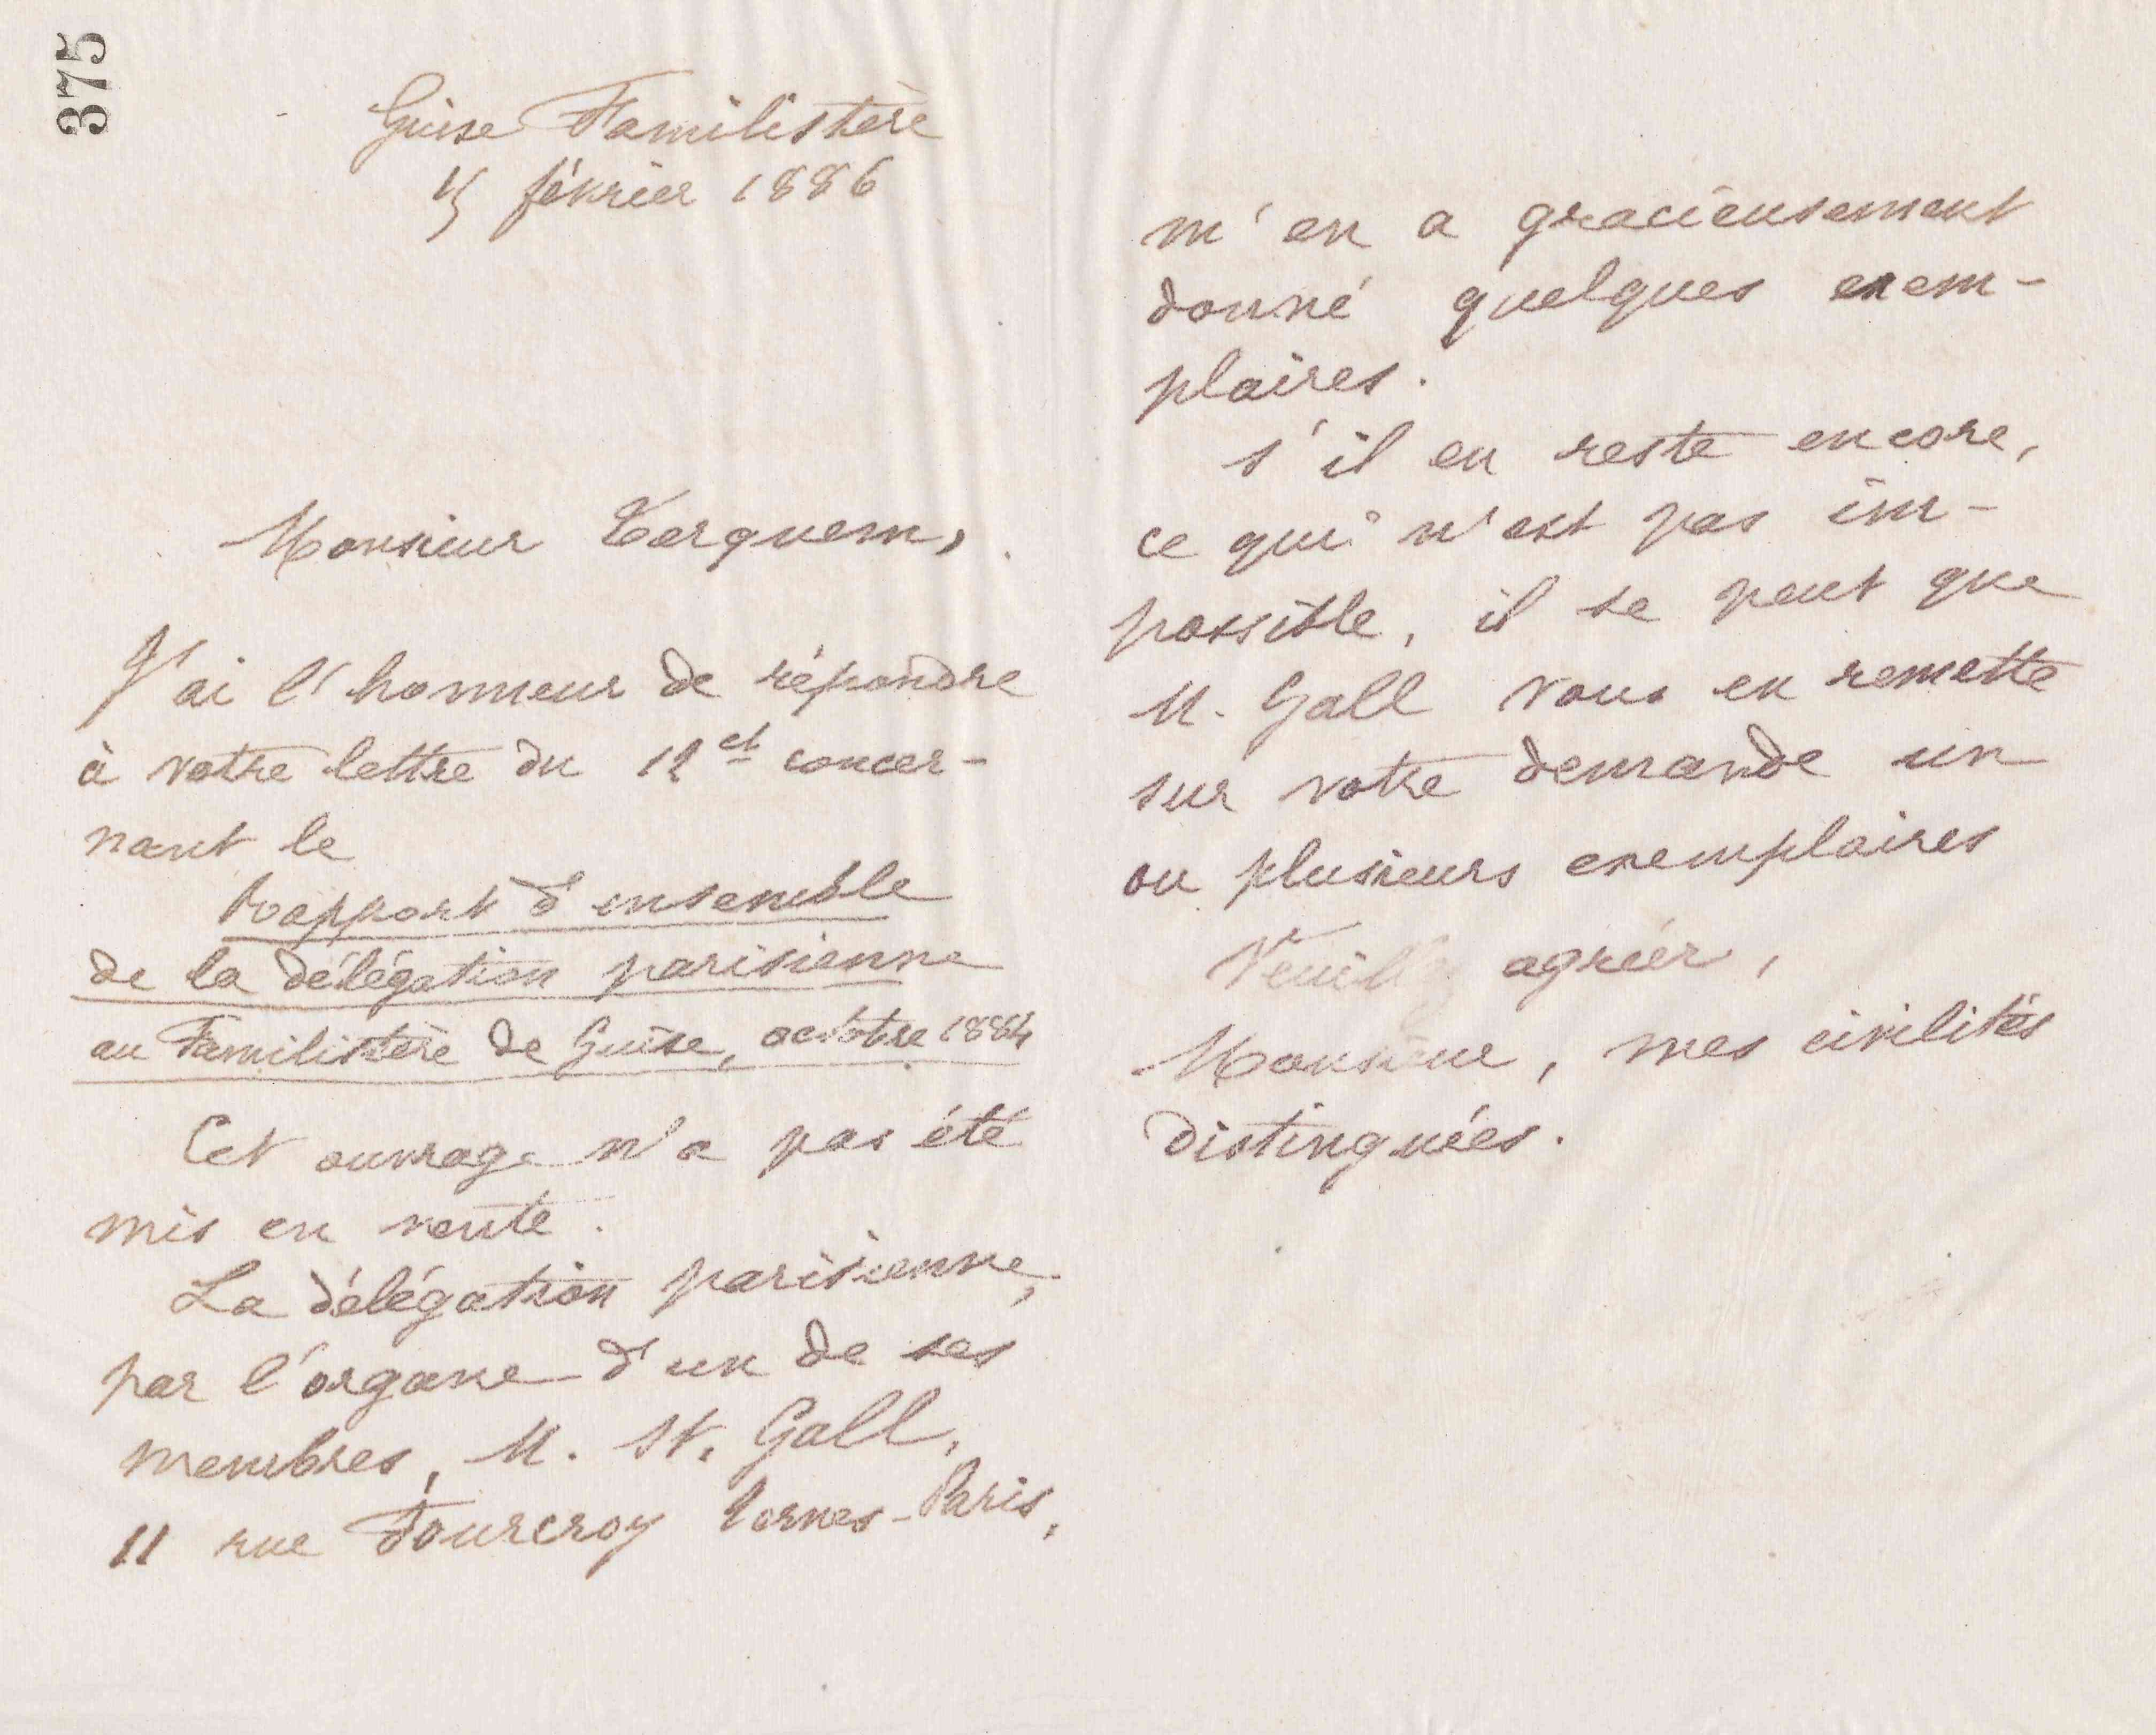 375
Guise Familistère
15 février 1886
Monsieur Terquem,
J'ai l'honneur de répondre
à votre lettre du 12 ct concer-
nant le
Rapport d'ensemble
de la délégation parisienne
au Familistère de Guise, octobre 1884
Cet ouvrage n'a pas été
mis en vente.
La délégation parisienne,
par l'organe d'un de ses
membres, M. St. Gall,
11 rue Fourcroy Ternes-Paris,
m'en a gracieusement
donné quelques exem-
plaires.
s'il en reste encore,
ce qui n'est pas im-
possible, il se peut que
M. Gall vous en remette
sur votre demande un
ou plusieurs exemplaires
Veuillez agréer,
Monsieur, mes civilités
distinguées.